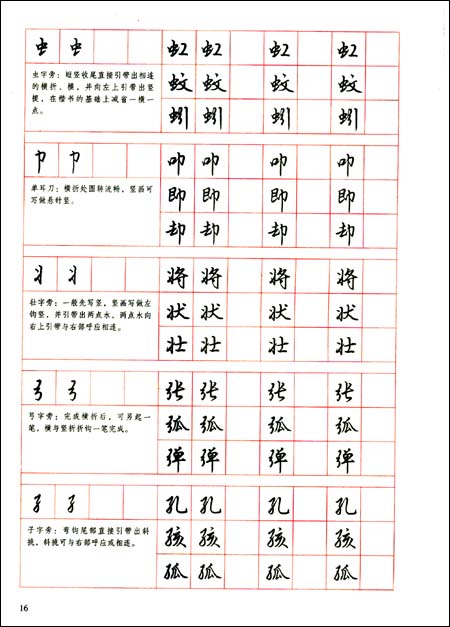 虫 虫 虹 虹 虹 虹
虫字旁：短竖收尾直接引带出相连
的横折、横，并向左上引带出竖
提，在楷书的基础上减省一横一
点。
蚊 蚊 蚊 蚊
蚓 蚓 蚓 蚓
卩 卩 叩 叩 叩 叩
单耳刀：横折处圆转流畅，竖画可
写做悬针竖。
即 即 即 即
却 却 却 却
丬 丬 将 将 将 将
壮字旁：一般先写竖，竖画写做左
钩竖，并引带出两点水，两点水向
右上引带与右部呼应相连。
状 状 状 状
壮 壮 壮 壮
弓 弓 张 张 张 张
弓字旁：完成横折后，可另起一
笔，横与竖折折钩一笔完成。
弧 弧 弧 弧
弹 弹 弹 弹
子 子 孔 孔 孔 孔
子字旁：弯钩尾部直接引带出斜
挑，斜挑可与右部呼应或相连。
孩 孩 孩 孩
孤 孤 孤 孤
16